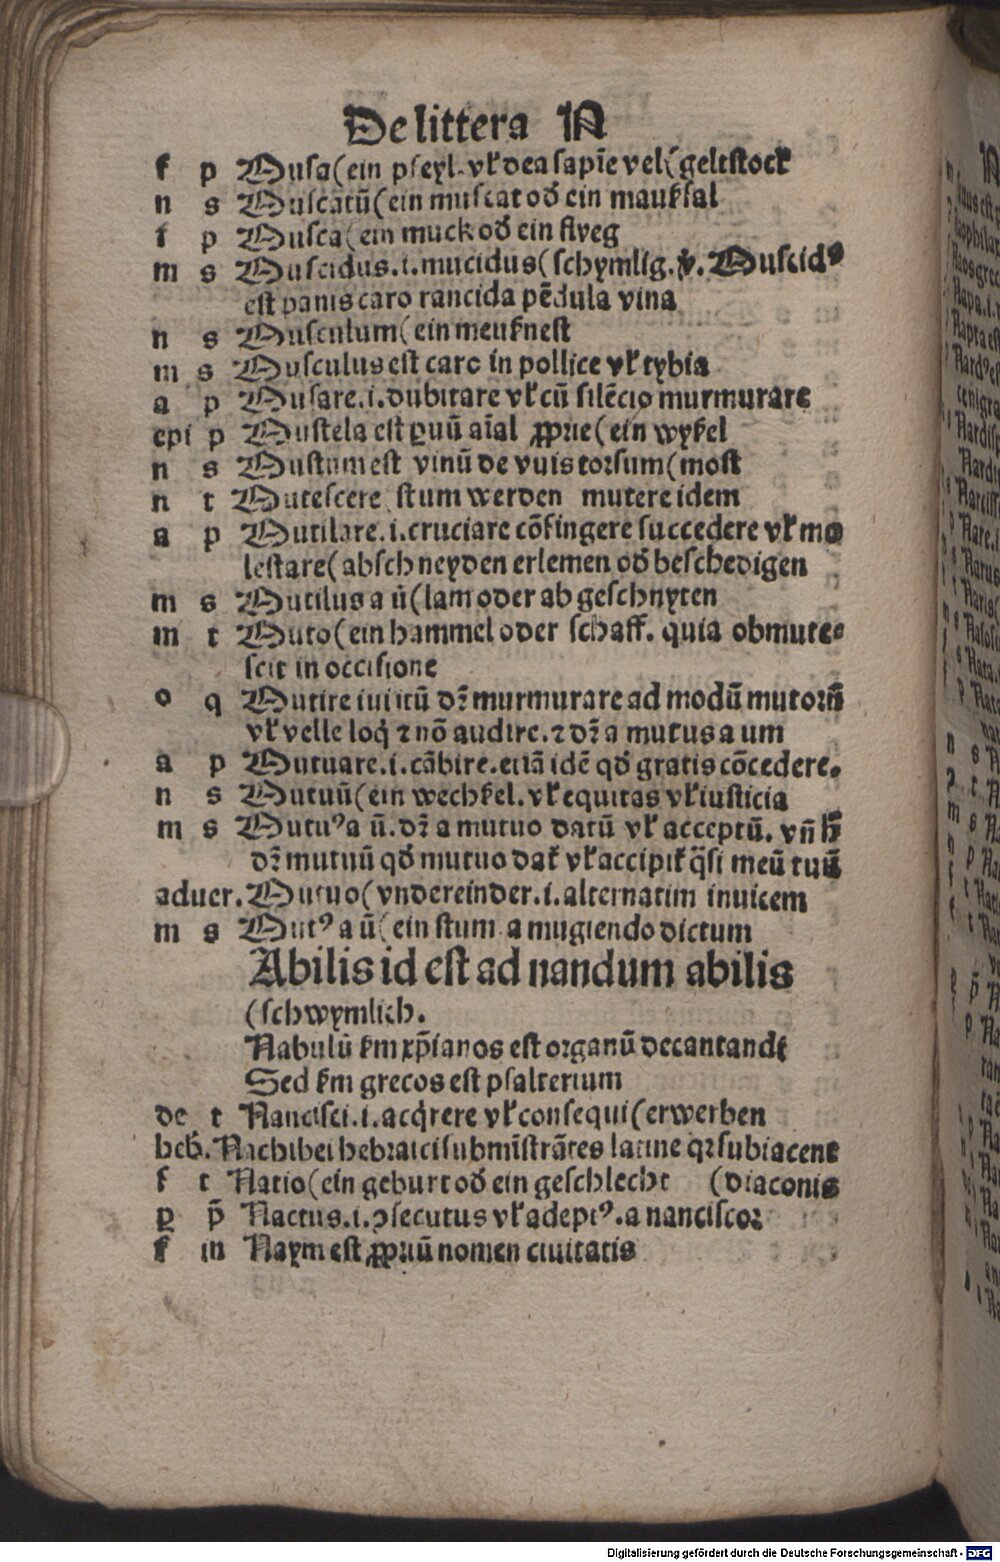 De littera N
f p Musa(ein pfeyl. vƚ dea sapiē vel(geltstock
n s Muscatū(ein muscat oď ein maukſal
f p Musca(ein muck oď ein flyeg
m s Muscidus.i.mucidus(schymlig. v̓. Muscidꝰ
est panis caro rancida pēdula vina
n s Musculum(ein meuſnest
m s Musculus est caro in pollice vƚ tybia
a p Musare.i.dubitare vƚ cū silēcio murmurare
epi p Mustela est ꝑuū aīal ꝓprie(ein wyſel
n s Mustum est vinū de vuis torsum(most
n t Mutescere stum werden mutere idem
a p Mutilare.i.cruciare cōfingere succedere vƚ mo
lestare(abschneyden erlemen oď beschedigen
m s Mutilus a ū(lam oder ab geschnyten
m t Muto(ein hammel oder schaff. quia obmute⸗
scit in occisione
o q Mutire dr̄ murmurare ad modū mutorū
vƚ velle loqͥ ⁊ nō audire.⁊ dr̄ a mutus a um
a p Mutuare.i.cābire.etiā idē qď gratis cōcedere.
n s Mutuū(ein wechſel. vƚ equitas vƚ iusticia
m s Mutuꝰ a ū. dr̄ a mutuo datū vƚ acceptū. vñ
dr̄ mutuū qď mutuo daƭ vƚ accipiƭ q̈si meū tuū
aduer. Mutuo(vndereinder.i.alternatim inuicem
m s Mutꝰ a ū(ein stum a mugiendo dictum
Abilis id est ad nandum abilis
(schwymlich.
Nabulū ẜm xp̄ianos est organū decantandi
Sed ẜm grecos est psalterium
de t Nancisci.i.acq̇rere vƚ consequi(erwerben
heb. Nachibei hebraici submīstrātes latine qr subiacent
f t Natio(ein geburt oď ein geschlecht (diaconis
ꝑ p̄ Nactus.i.ꝯsecutus vƚ adeptꝰ.a nanciscor
f in Naym est ꝓpriū nomen ciuitatis
Digitalisierung gefördert durch die Deutsche Forschungsgemeinschaft - DFG